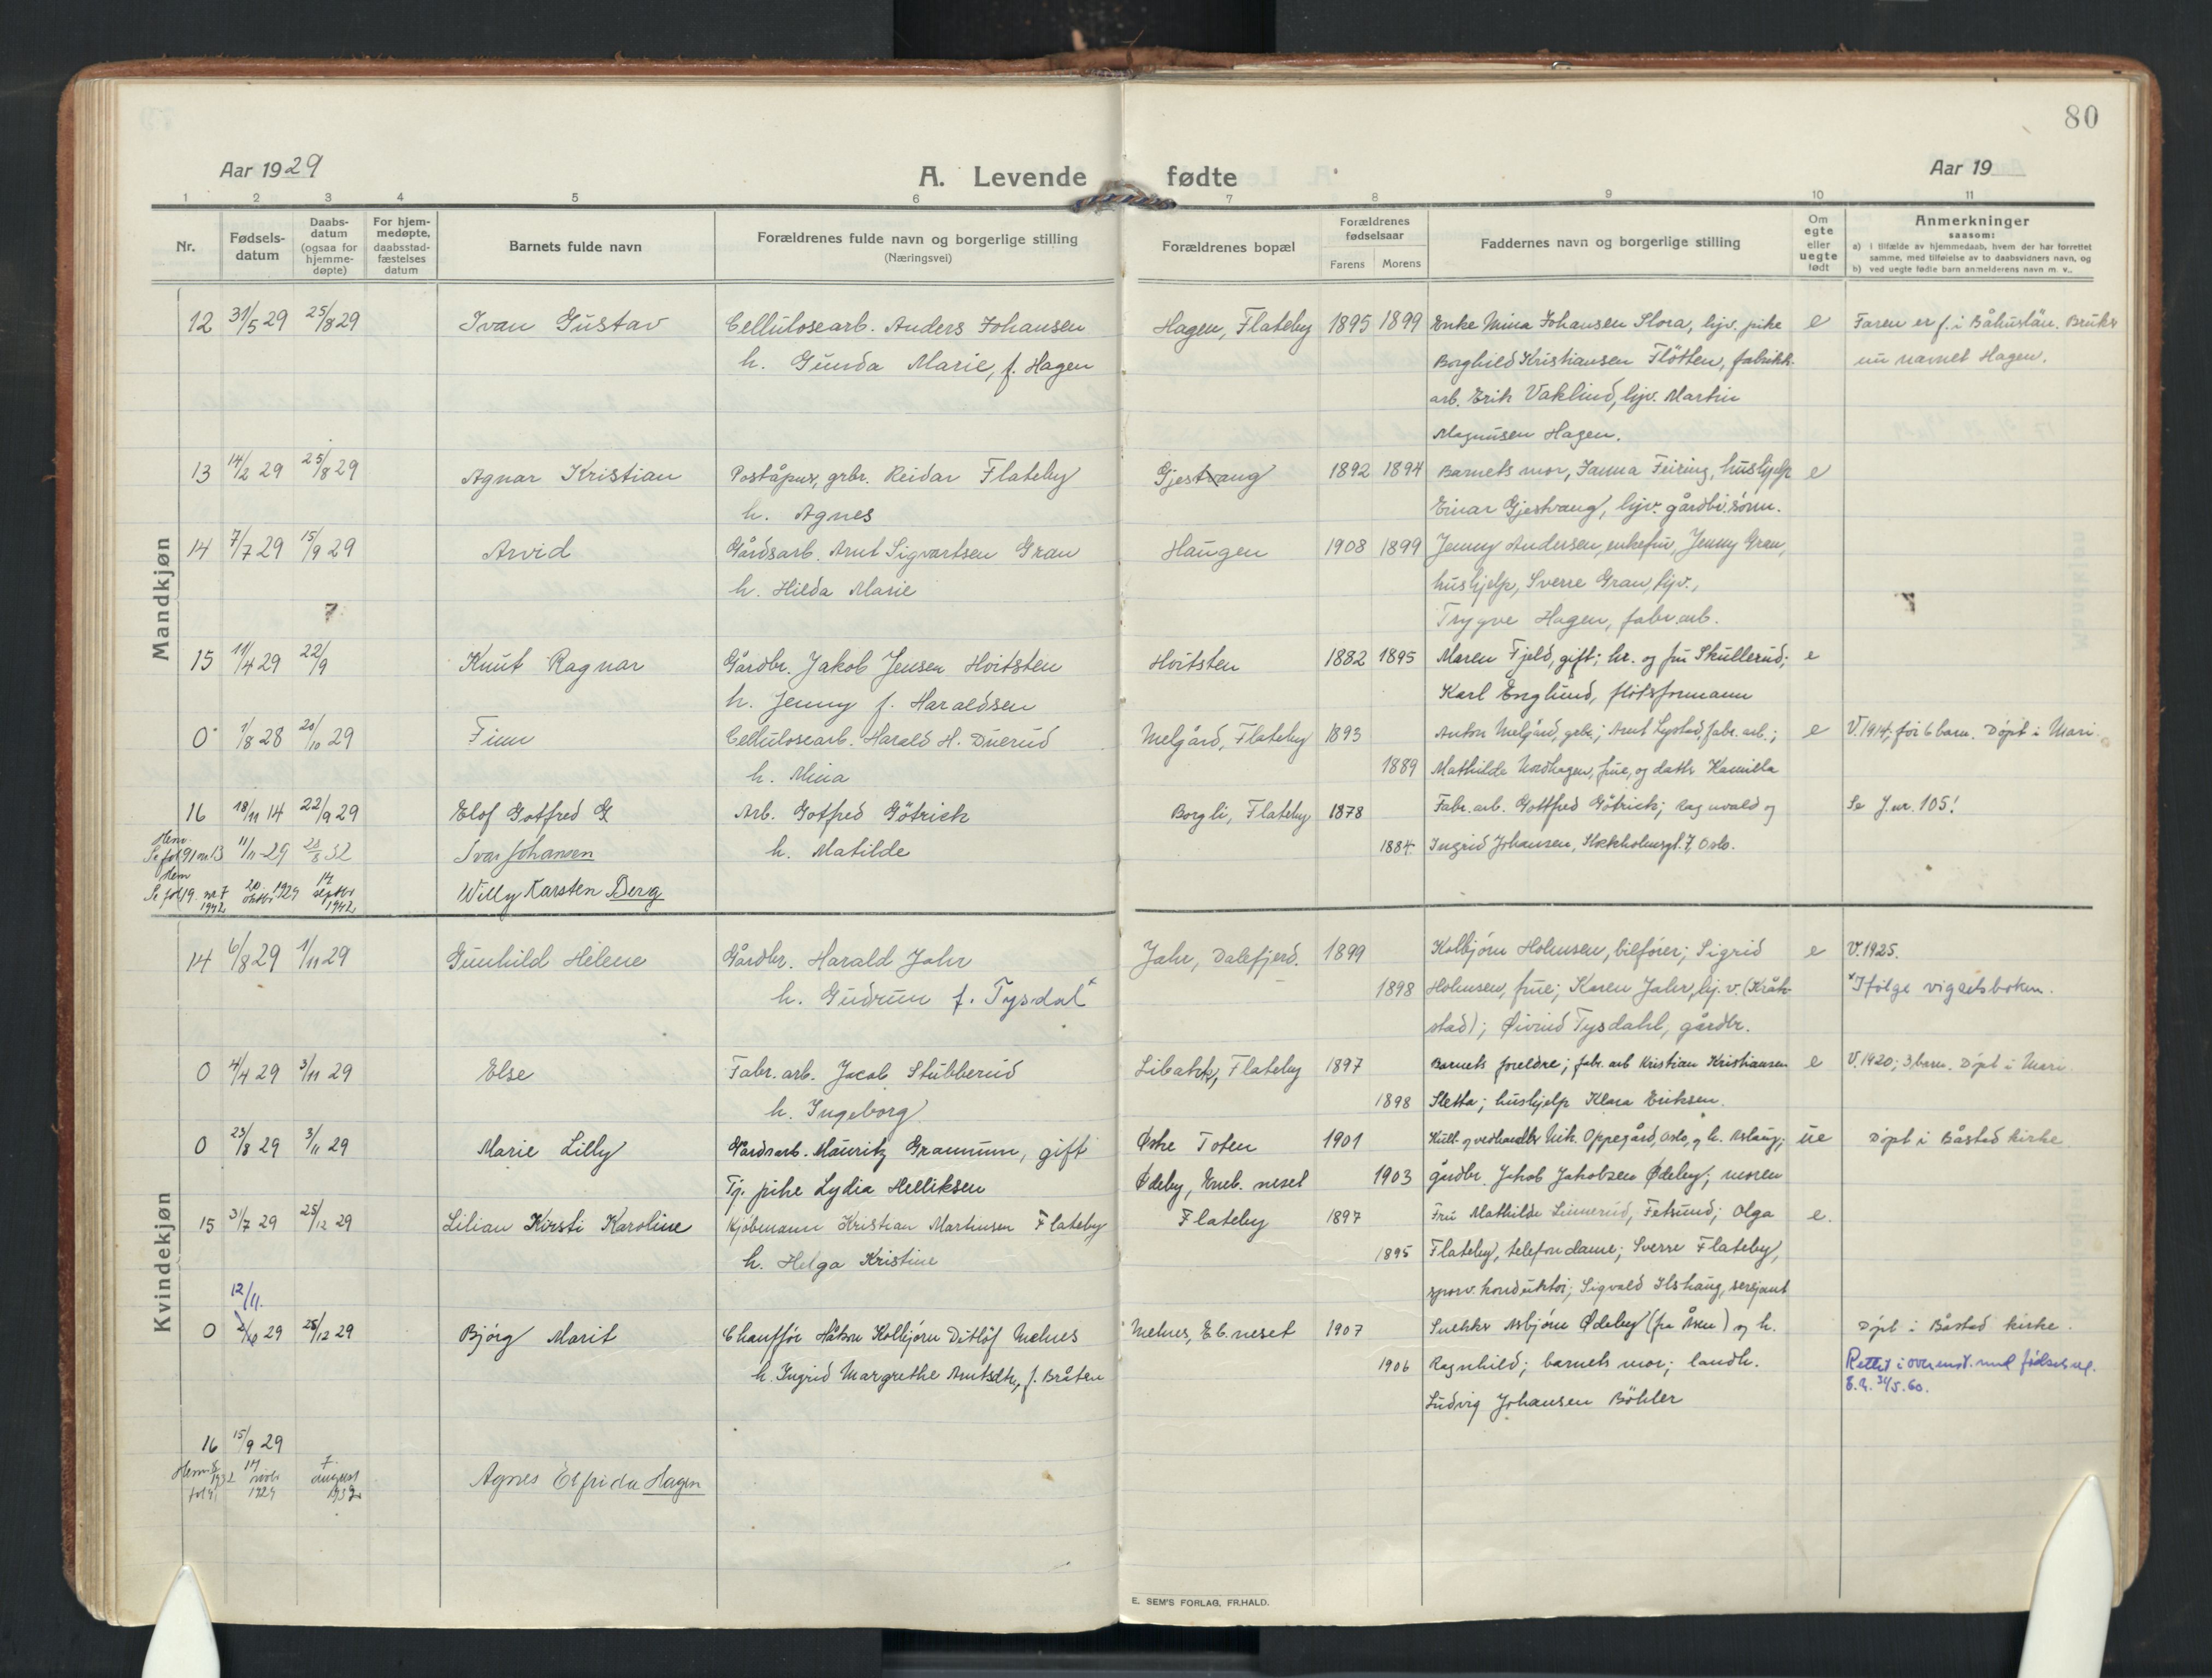 80
Aar 1929
A. Levende fødte
Aar 19
1 2 3 4 5 6 7 8 9 10 11
Nr.
Fødsels-
datum
Daabs-
datum
(ogsaa for
hjemme-
døpte)
For hjem-
medøpte,
daabsstad-
fæstelses
datum
Barnets fulde navn
Forældrenes fulde navn og borgerlige stilling
(Næringsvei)
Forældrenes bopæl
Forældrenes
fødselsaar
Farens Morens
Faddernes navn og borgerlige stilling
Om
egte
eller
uegte
født
Anmerkninger
saasom:
a) i tilfælde av hjemmedaab, hvem der har forrettet
samme, med tilføielse av to daabsvidners navn, og
b) ved uegte fødte barn anmelderens navn m. v..
Mandkjøn
12 31/5 29 25/8 29 Ivan Gustav Cellulosearb. Anders Johansen Hagen, Flateby 1895 1899 Enke Mina Johansen Slora, hjv. pike e Faren er f. i Båhuslän. Bruker
h. Gunda Marie, f. Hagen Borghild Kristiansen Fløtten, fabrikk- nu navnet Hagen.
arb. Erik Vaklund, hjv. Martin
Magnusen Hagen.
13 14/2 29 25/8 29 Agnar Kristian Poståpner, grbr. Reidar Flateby Gjestvang 1892 1894 Barnets mor, Janna Feiring, hushjelp e
h. Agnes Einar Gjestvang, hjv. gårdbr.sønn.
14 7/7 29 15/9 29 Arvid Gårdsarb. Arnt Sigvartsen Gran Haugen 1908 1899 Jenny Andersen, enkefru, Jenny Gran,
h. Hilda Marie hushjelp, Sverre Gran, hjv.,
Trygve Hagen, fabr.arb.
15 11/4 29 22/9 Knut Ragnar Gårdbr. Jakob Jensen Hvitsten Hvitsten 1882 1895 Maren Fjeld, gift; hr. og fru Skullerud; e
h. Jenny f. Haraldsen Karl Englund, fløtsformann
0 1/8 28 20/10 29 Finn Cellulosearb. Harald H. Duerud Melgård, Flateby 1893 Anton Melgård, grbr.; Arnt Lystad, fabr. arb.; e V. 1914; før 6 barn. Døpt i Mari.
h. Mina 1889 Mathilde Nordhagen, frue, og datter Kamilla
16 18/11 14 22/9 29 Elof Gotfred G Arb. Gotfred Götrick Borgli, Flateby 1878 Fabr. arb. Gottfred Götrick; Ragnvald og Se J. nr. 105!
h. Matilde 1884 Ingrid Johansen, Stokkholmsgt. 7, Oslo.
Henv.
Se fol 91 nr 13 11/11-29 28/8 32 Ivar Johansen
Henv
Se fol 19. nr 7 1942 20 oktbr 1929 14 septbr 1942 Willy Karsten Berg
Kvindekjøn
14 6/8 29 1/11 29 Gunhild Helene Gårdbr. Harald Jahr Jahr, Dalefjerd. 1899 Kolbjørn Holmsen, bilfører; Sigrid e V. 1925.
h. Gudrun f. Tysdalˣ 1898 Holmsen, frue; Karen Jahr, hj. v. (Kråk- ˣIfølge vigselsboken.
stad); Øivind Tysdahl, gårdbr.
0 4/4 29 3/11 29 Else Fabr. arb. Jacob Stubberud Libakk, Flateby 1897 Barnets foreldre; fabr. arb Kristian Kristiansen e V. 1920; 3 barn. Døpt i Mari.
h. Ingeborg 1898 Sletta; hushjelp Klara Eriksen.
0 23/8 29 3/11 29 Marie Lilly Gårdsarb. Mauritz Gramum, gift Østre Toten 1901 Kull- og vedhandler Nik. Oppegård, Oslo, og h. Aslaug; ue Døpt i Båstad kirke.
Tj. pike Lydia Helliksen Ødeby, Eneb. neset 1903 gårdbr. Jakob Jakobsen Ødeby; moren
15 31/7 29 25/12 29 Lilian Kirsti Karoline Kjøbmann Kristian Martinsen Flateby Flateby 1897 Fru Mathilde Linnerud, Fetsund; Olga e.
h. Helga Kristine 1895 Flateby, telefondame; Sverre Flateby,
sporv. konduktør; Sigvald Ilshaug, sersjant
12/11.
0 2/10 29 25/12 29 Bjørg Marit Chauffør Håkon Kolbjørn Ditløf Melnes Melnes, Eb.neset 1907 Snekker Asbjørn Ødeby (fra Åsen) og h. Døpt i Båstad kirke.
h. Ingrid Margrethe Arntsdtr, f. Bråten 1906 Ragnhild; barnets mor; landh. Rettet i overenst. med fødselsm.
Ludvig Johansen Böhler 31/5.60.
16 15/9 29
Henv. 1932 14 novbr 1929 7. august 1932 Agnes Elfrida Hagen
E. SEM'S FORLAG, FR.HALD.